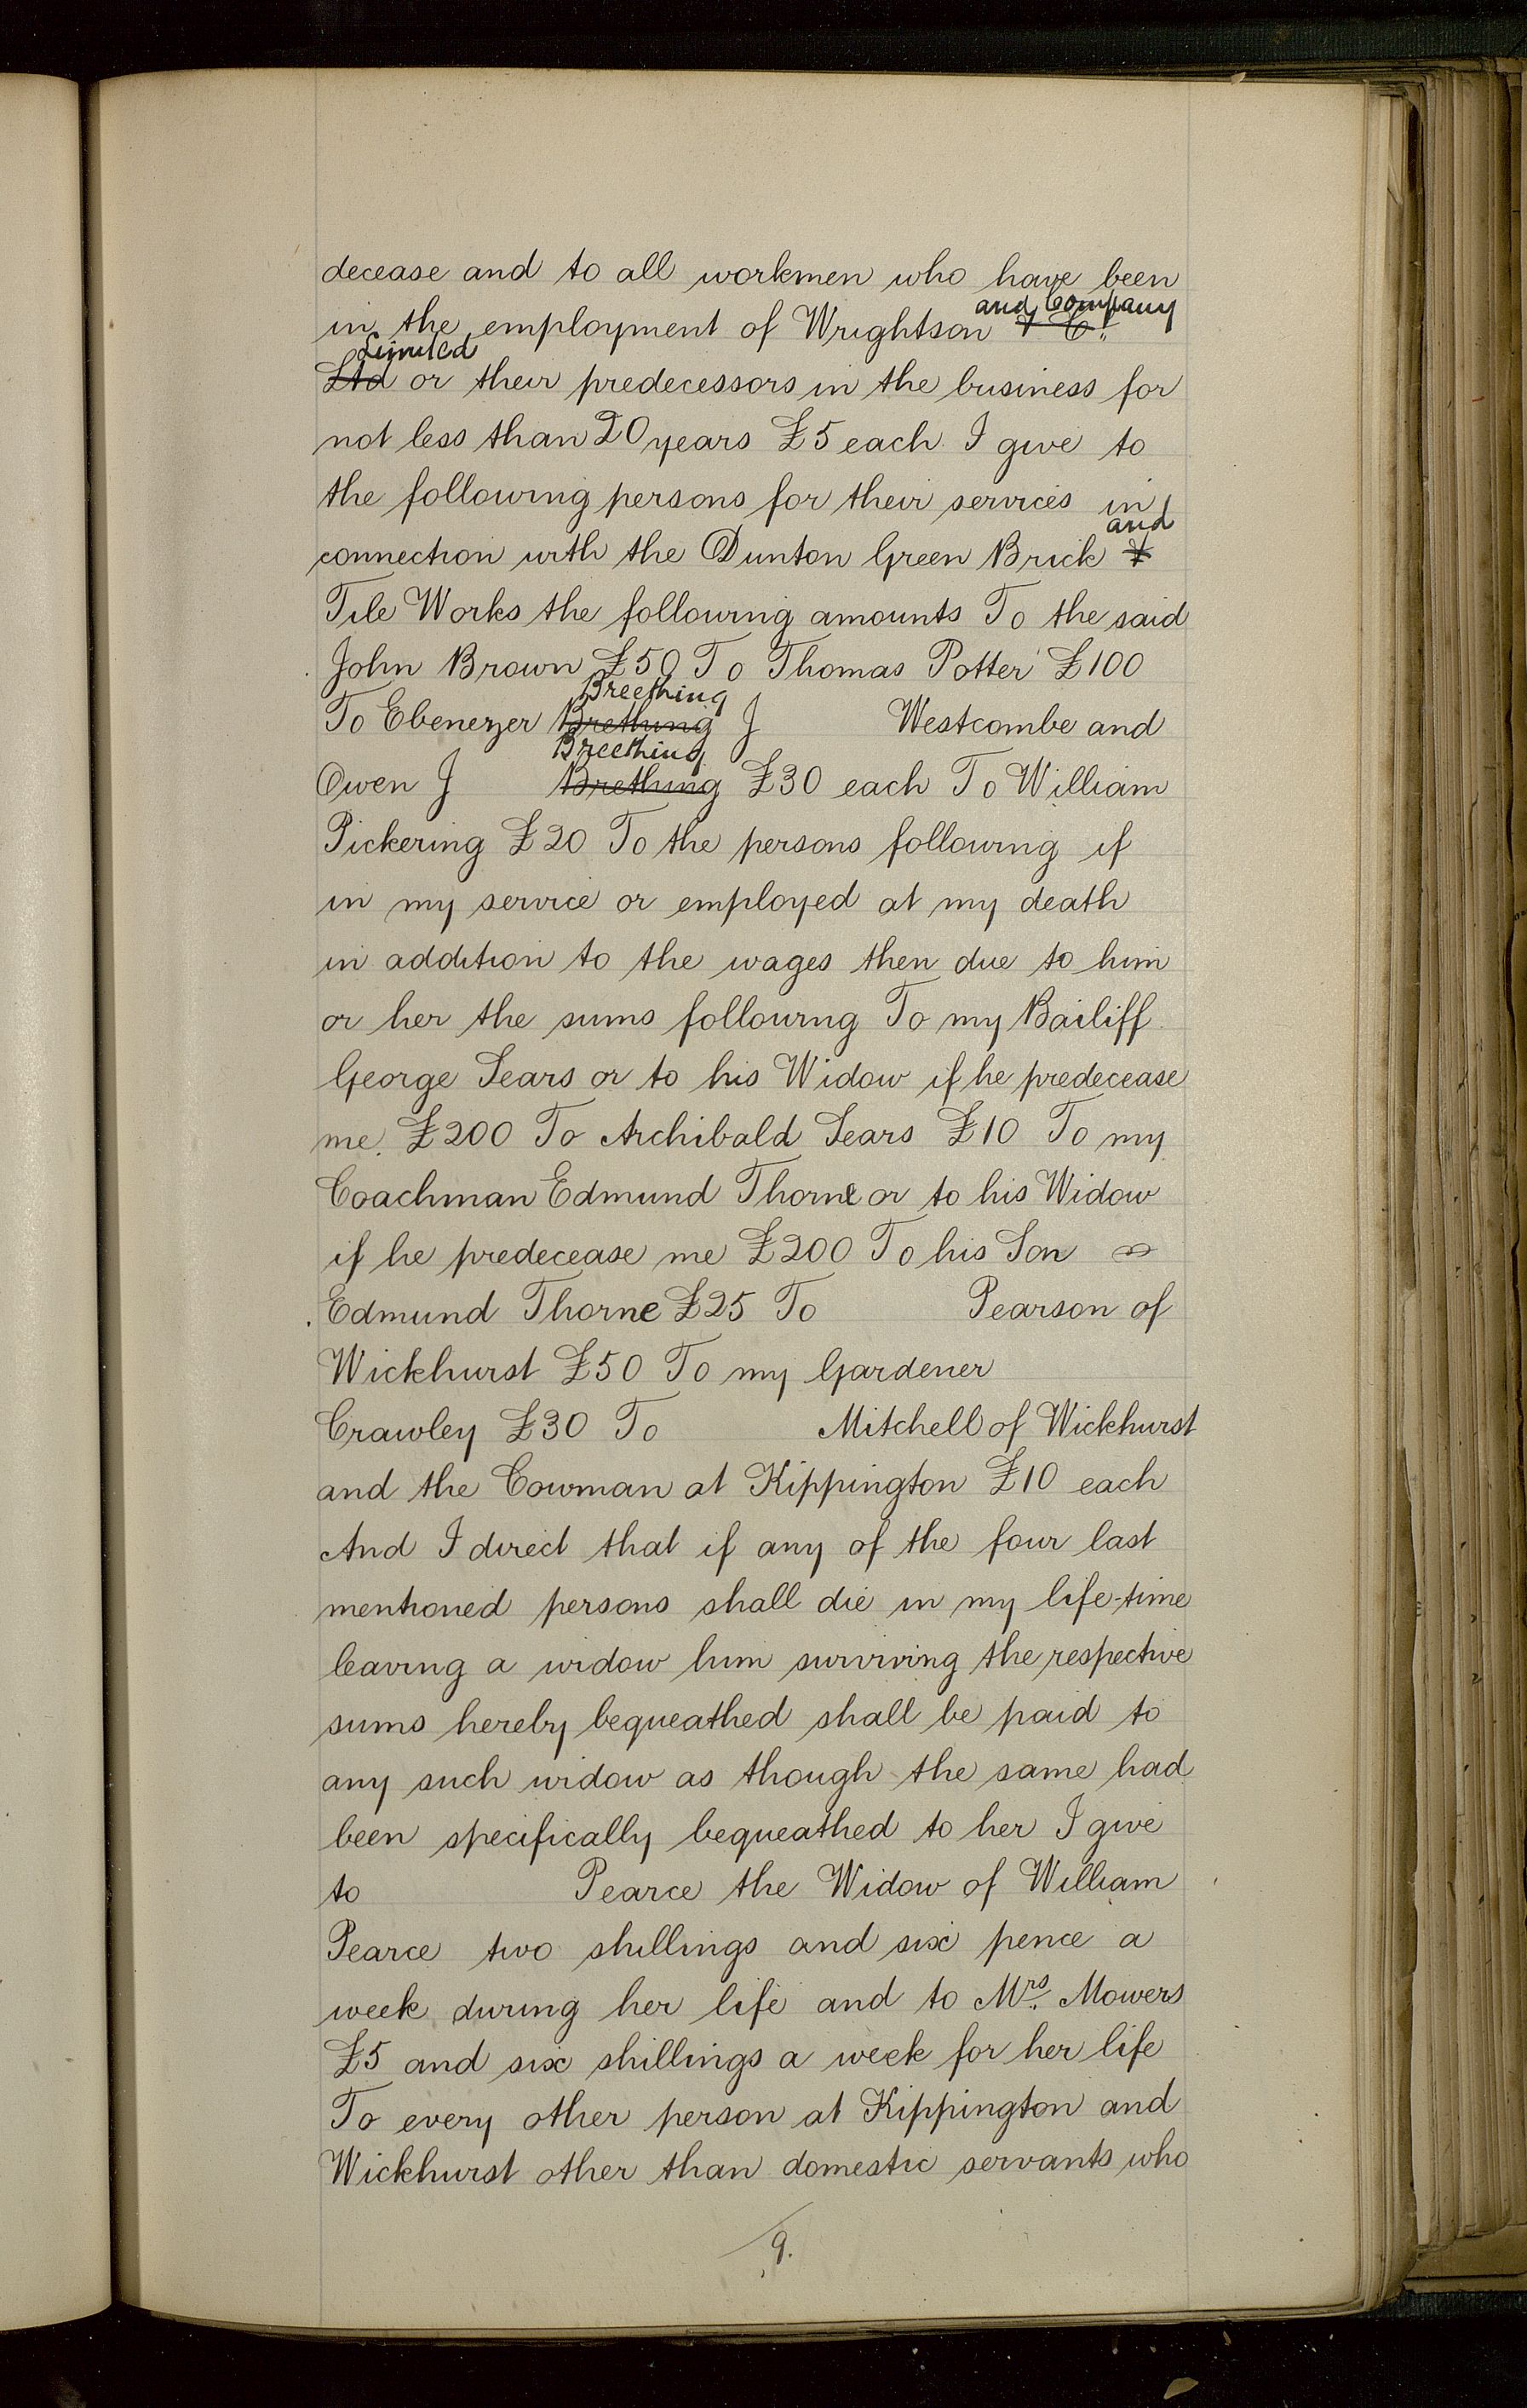 decease and to all workmen who have been
in the employment of Wrightson & Co. and Company
Ltd Limited or their predecessors in the business for
not less than 20 years £5 each I give to
the following persons for their services in
connection with the Dunton Green Brick & and
Tile Works the following amounts To the said
John Brown £50 To Thomas Potter £100
To Ebenezer Brething Breething J Westcombe and
Owen J Brething Breething £30 each To William
Pickering £20 To the persons following if
in my service or employed at my death
in addition to the wages then due to him
or her the sums following To my Bailiff
George Sears or to his Widow if he predecease
me. £200 To Archibald Sears £10 To my
Coachman Edmund Thorne or to his Widow
if he predecease me £200 To his Son
Edmund Thorne £25 To Pearson of
Wickhurst £50 To my Gardener
Crawley £30 To Mitchell of Wickhurst
and the Cowman at Kippington £10 each
And I direct that if any of the four last
mentioned persons shall die in my life-time
leaving a widow him surviving the respective
sums hereby bequeathed shall be paid to
any such widow as though the same had
been specifically bequeathed to her I give
to Pearce the Widow of William
Pearce two shillings and six pence a
week during her life and to Mrs. Mowers
£5 and six shillings a week for her life
To every other person at Kippington and
Wickhurst other than domestic servants who
9.